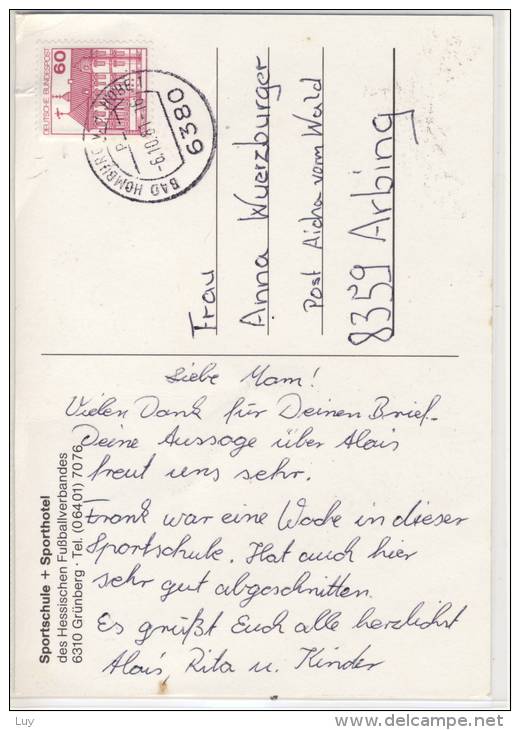 60
DEUTSCHE BUNDESPOST
BAD HOMBURG V.D. HÖHE 1
6380
Frau
Anna Wuerzburger
Post Aicha vorm Wald
8359 Arbing
Liebe Mam!
Vielen Dank für Deinen Brief.
Deine Aussage über Alois
freut uns sehr.
Frank war eine Woche in dieser
Sportschule. Hat auch hier
sehr gut abgeschnitten.
Es grüßt Euch alle herzlichst
Alois, Rita u. Kinder
Sportschule + Sporthotel
des Hessischen Fußballverbandes
6310 Grünberg · Tel. (0 64 01) 70 76
Luy
www.delcampe.net